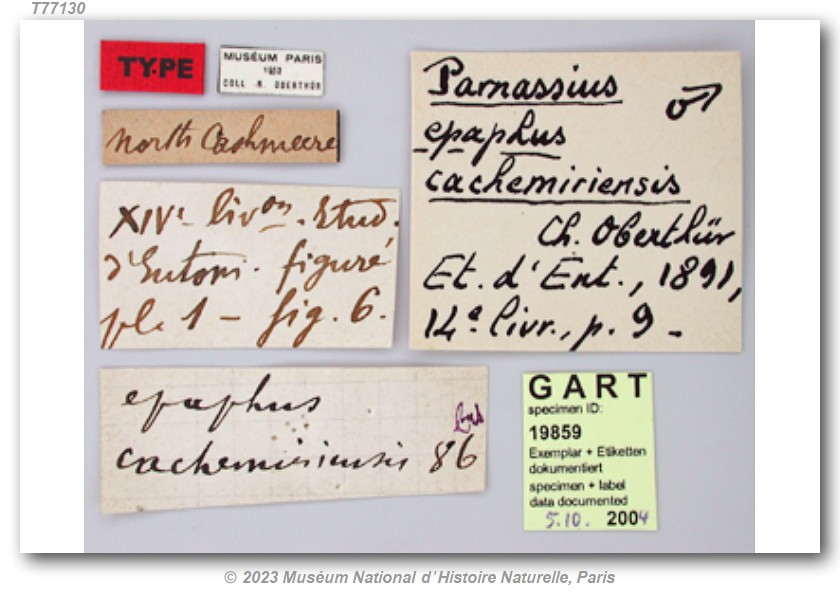 T77130
TYPE
MUSÉUM PARIS
COLL R. OBERTHÜR
north Cashmeere
XIVe livon. Etud.
d'Entom. figuré
pl. 1 – fig. 6.
Parnassius ♂
epaphus
cachemiriensis
Ch. Oberthür
Et. d'Ent., 1891,
14e livr., p. 9 –
epaphus
cachemiriensis 86
GART
specimen ID:
19859
Exemplar + Etiketten
dokumentiert
specimen + label
data documented
5.10. 2004
© 2023 Muséum National d'Histoire Naturelle, Paris